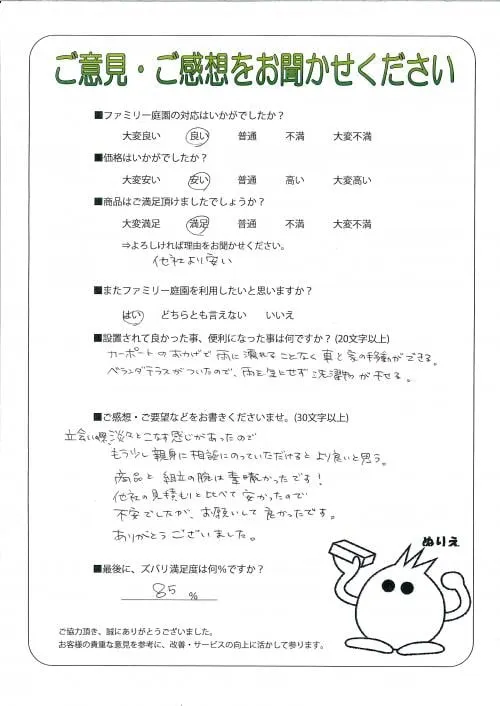 ご意見・ご感想をお聞かせください
■ファミリー庭園の対応はいかがでしたか？
大変良い 良い 普通 不満 大変不満
■価格はいかがでしたか？
大変安い 安い 普通 高い 大変高い
■商品はご満足頂けましたでしょうか？
大変満足 満足 普通 不満 大変不満
⇒よろしければ理由をお聞かせください。
他社より安い
■またファミリー庭園を利用したいと思いますか？
はい どちらとも言えない いいえ
■設置されて良かった事、便利になった事は何ですか？(20文字以上)
カーポートのおかげで雨に濡れることなく車と家の移動ができる。
ベランダテラスがついたので、雨を気にせず洗濯物が干せる。
■ご感想・ご要望などをお書きくださいませ。(30文字以上)
立会い時、淡々とこなす感じがあったので
もう少し親身に相談にのっていただけるとより良いと思う。
商品と組立の腕は素晴かったです！
他社の見積もりと比べて安かったので
不安でしたが、お願いして良かったです。
ありがとうございました。
ぬりえ
■最後に、ズバリ満足度は何％ですか？
85 ％
ご協力頂き、誠にありがとうございました。
お客様の貴重な意見を参考に、改善・サービスの向上に活かして参ります。